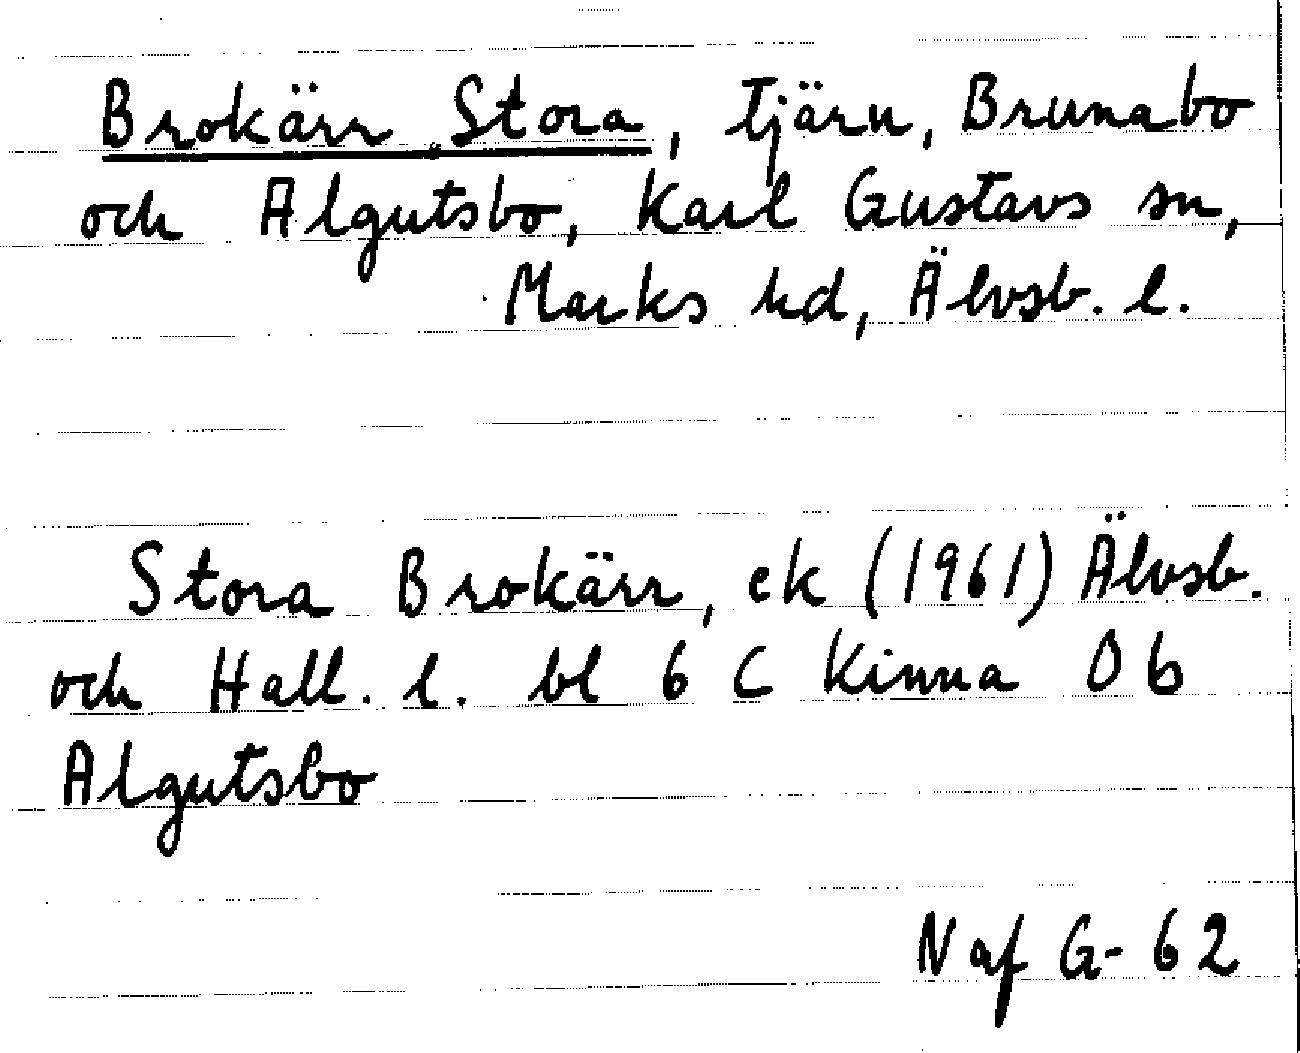 Brokärr, Stora, tjärn, Brunabo
och Algutsbo, Karl Gustavs sn,
Marks hd, Älvsb. l.
Stora Brokärr, ek (1961) Älvsb.
och Hall. l. bl 6 C Kinna 0 b
Algutsbo
Naf G-62